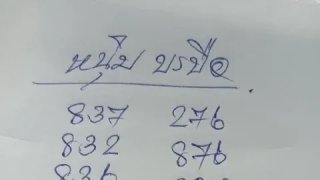 หนุ่ม บรบือ
837 276
832 876
836